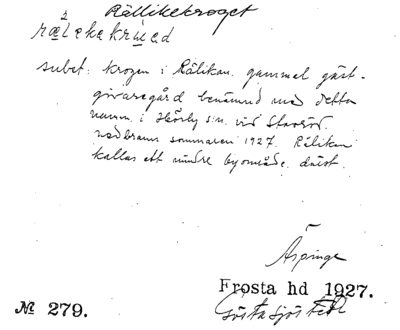 Rällikekroget
subst. krogen i Rälikan. gammel gäst-
givaregård benämnd med detta
namn. i Hörby s:n. vid Starröd.
nedbrann sommaren 1927. Rälikan
kallas ett mindre byområde. därst.
Äspinge
Frosta hd 1927.
№ 279.
Gösta Sjöstedt